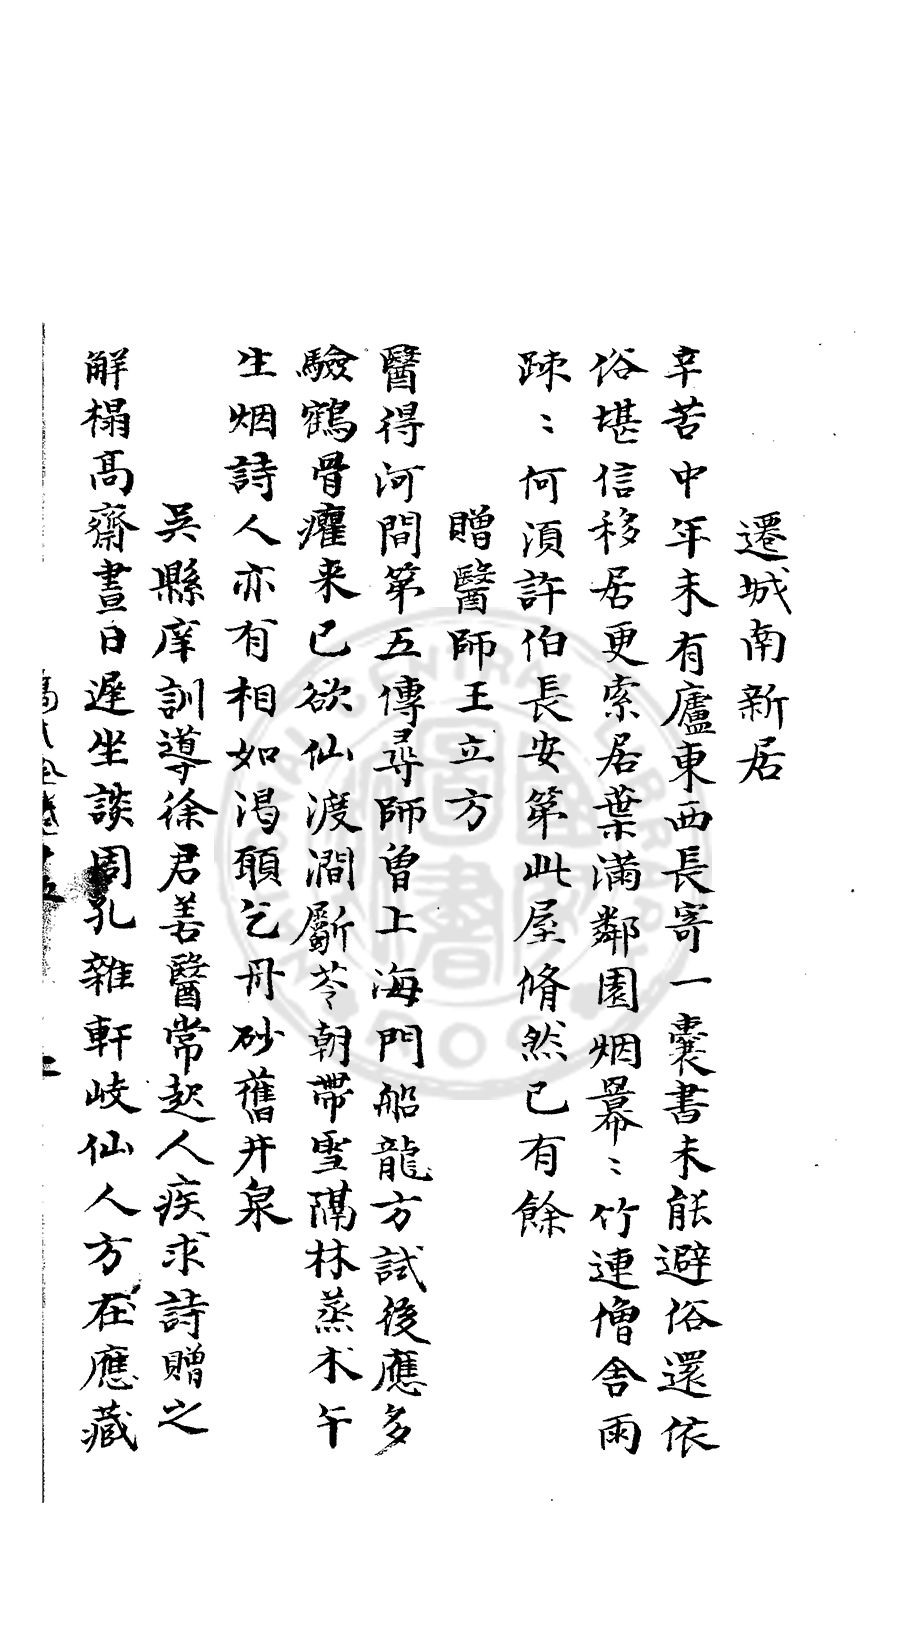 遷城南新居
辛苦中年未有廬東西長寄一囊書未能避俗還依
俗堪信移居更索居葉滿鄰園烟羃〻竹連僧舍雨
踈〻何須許伯長安第此屋脩然已有餘
贈醫師王立方
醫得河間第五傳尋師曾上海門船龍方試後應多
驗鶴骨癯来已欲仙渡澗斸苓朝帶雪隔林蒸朮午
生烟詩人亦有相如渴願乞丹砂舊井泉
吳縣庠訓導徐君善醫常起人疾求詩贈之
解榻高齋晝日遲坐談周孔雜軒岐仙人方在應藏